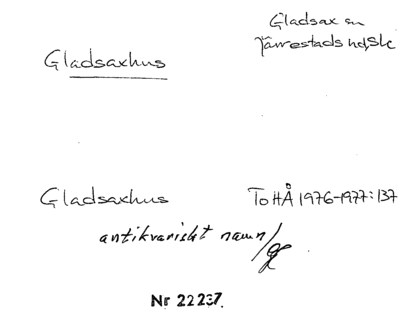 Gladsaxhus
Gladsax sn
Järrestads hd, Sk
Gladsaxhus
ToHÅ 1976-1977:137
antikvariskt namn/
Nr 22237.